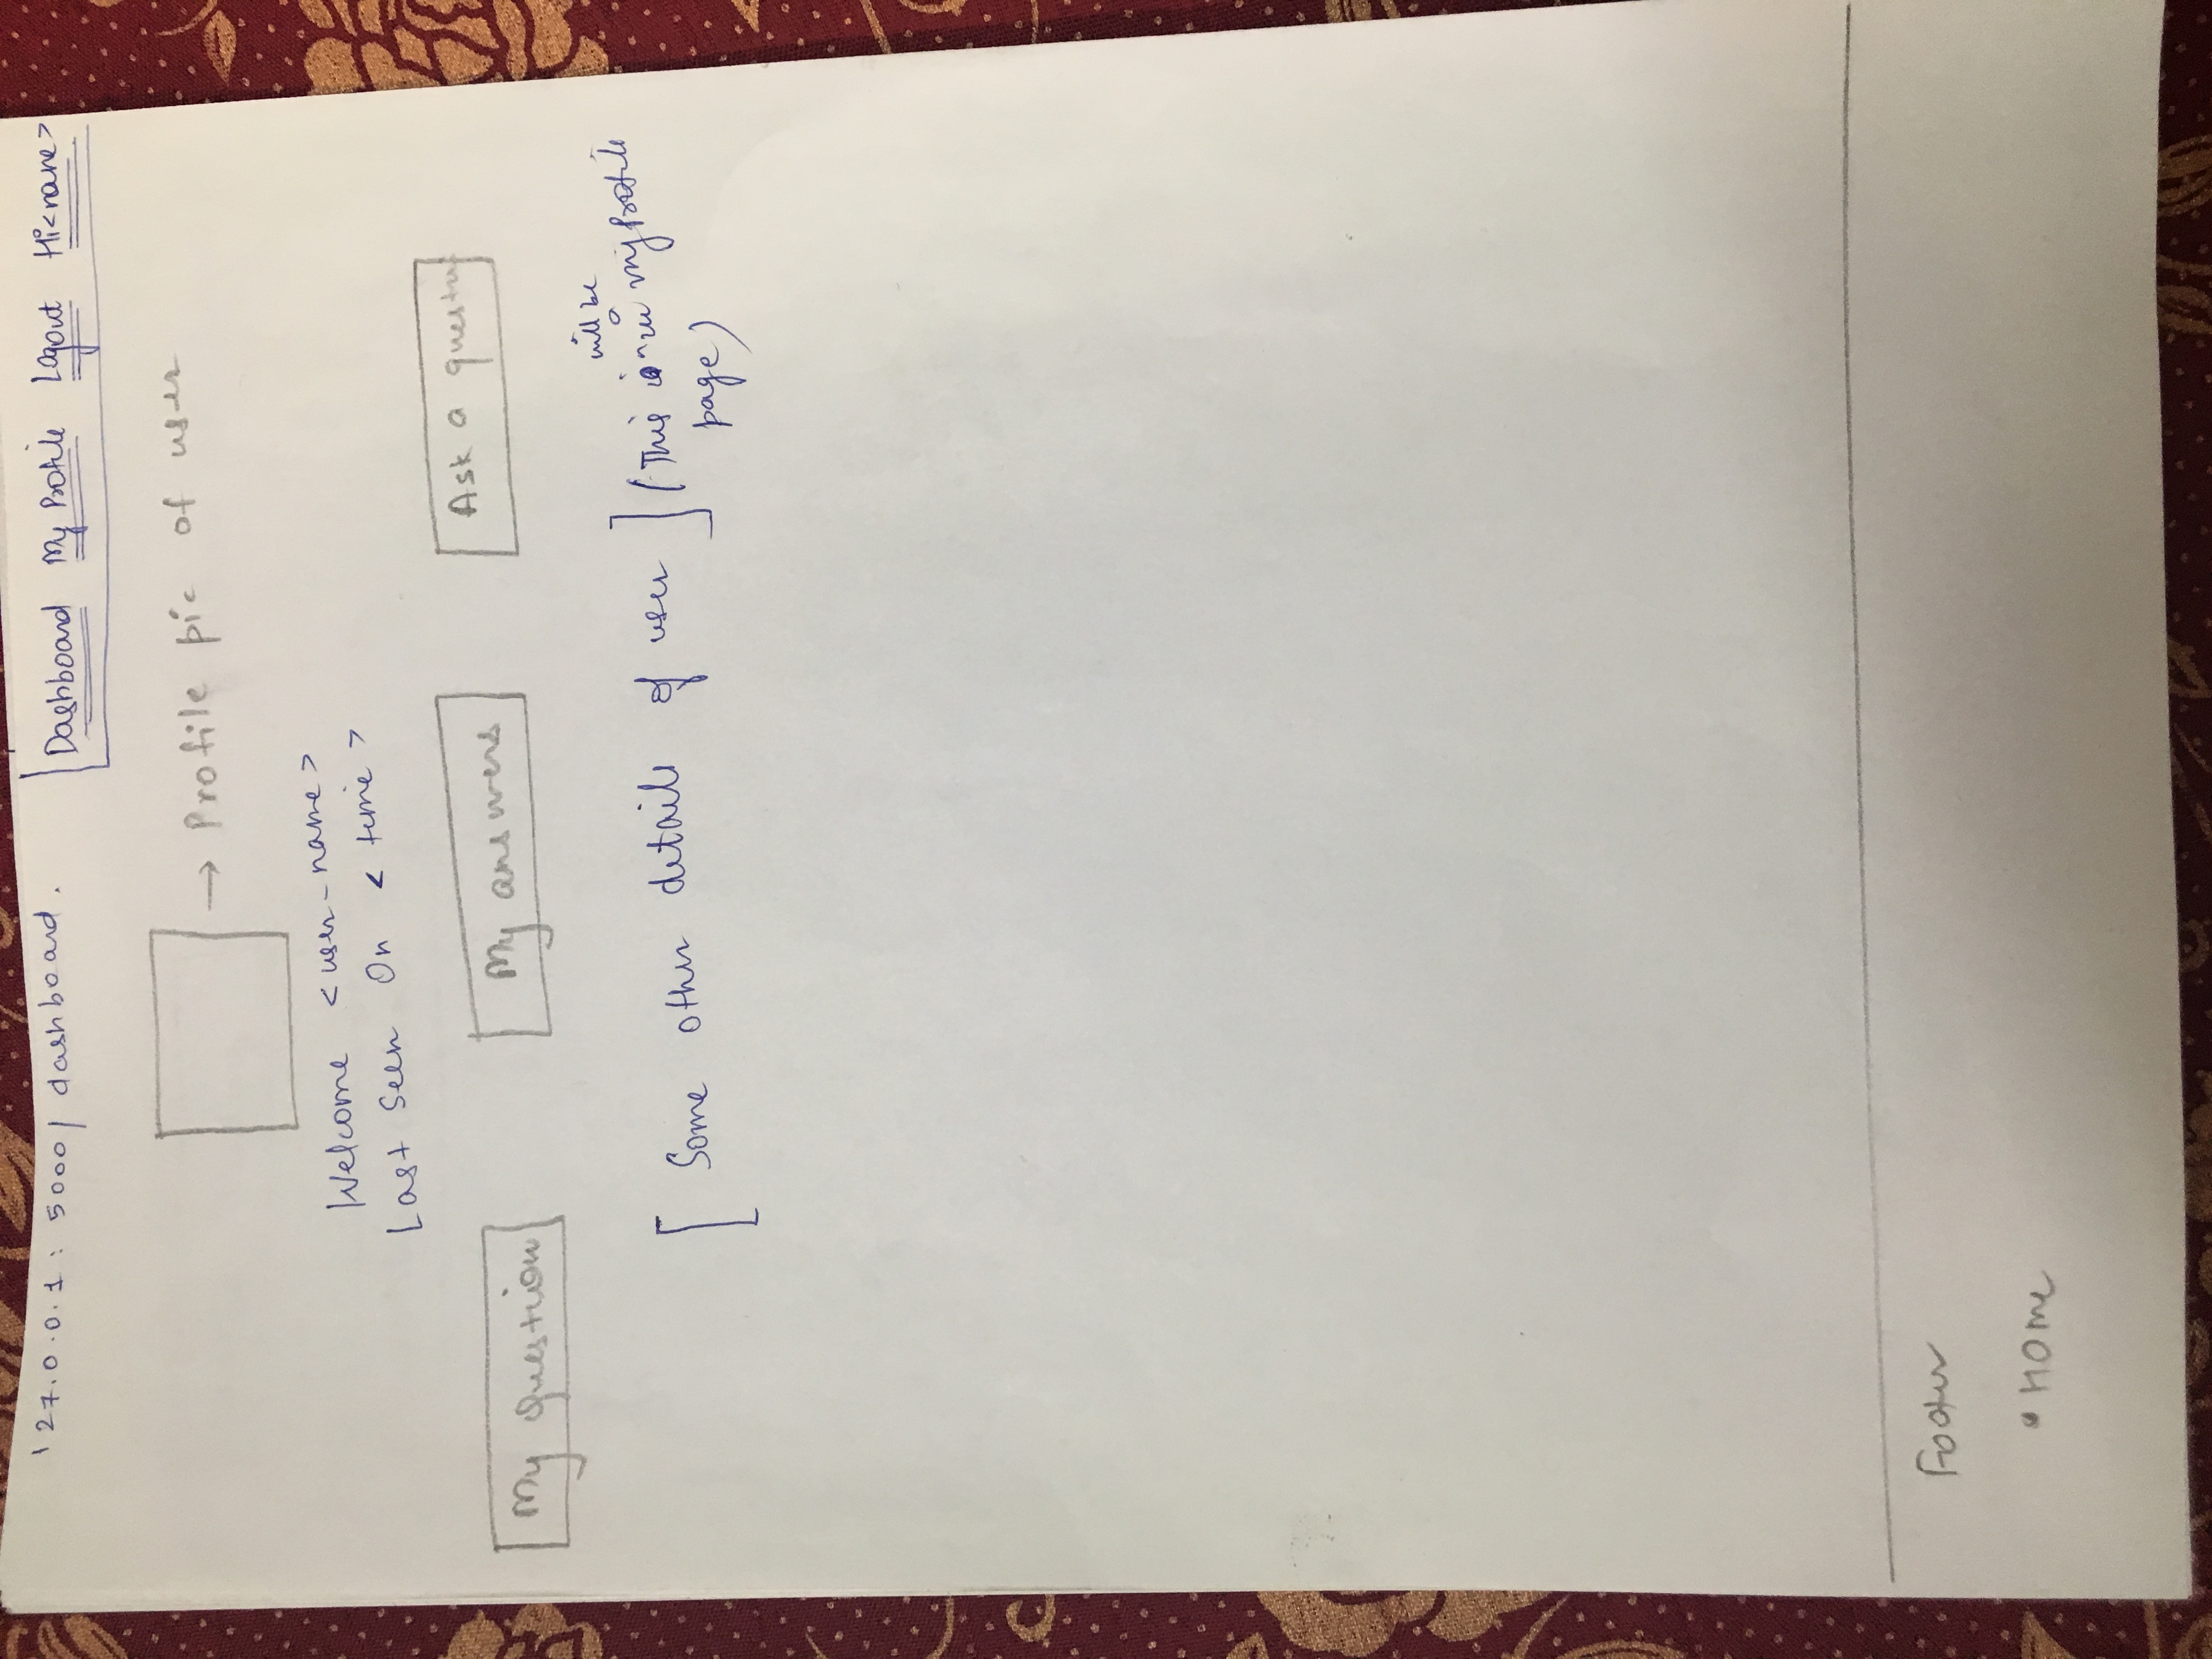 127.0.0.1:5000/dashboard.
Dashboard My Profile Logout Hi<name>
→ Profile pic of user
Welcome <user-name>
Last Seen On <time>
My question
My answers
Ask a question
[ Some other details of user ] (This will be in my Profile
page)
Footer
• Home